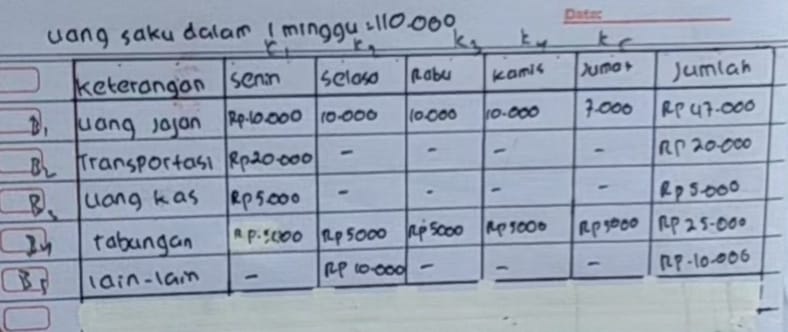 Date:
uang saku dalam 1 minggu = 110.000
K1 K2 K3 K4 K5
keterangan Senin Selasa Rabu Kamis Jumat Jumlah
B1 uang jajan Rp.10.000 10.000 10.000 10.000 7.000 Rp 47.000
B2 Transportasi Rp20.000 - - - - Rp 20.000
B3 uang kas Rp5000 - - - - Rp 5.000
B4 tabungan Rp.5000 Rp5000 Rp5000 Rp5000 Rp5000 Rp 25.000
B5 lain-lain - Rp 10.000 - - - Rp.10.000